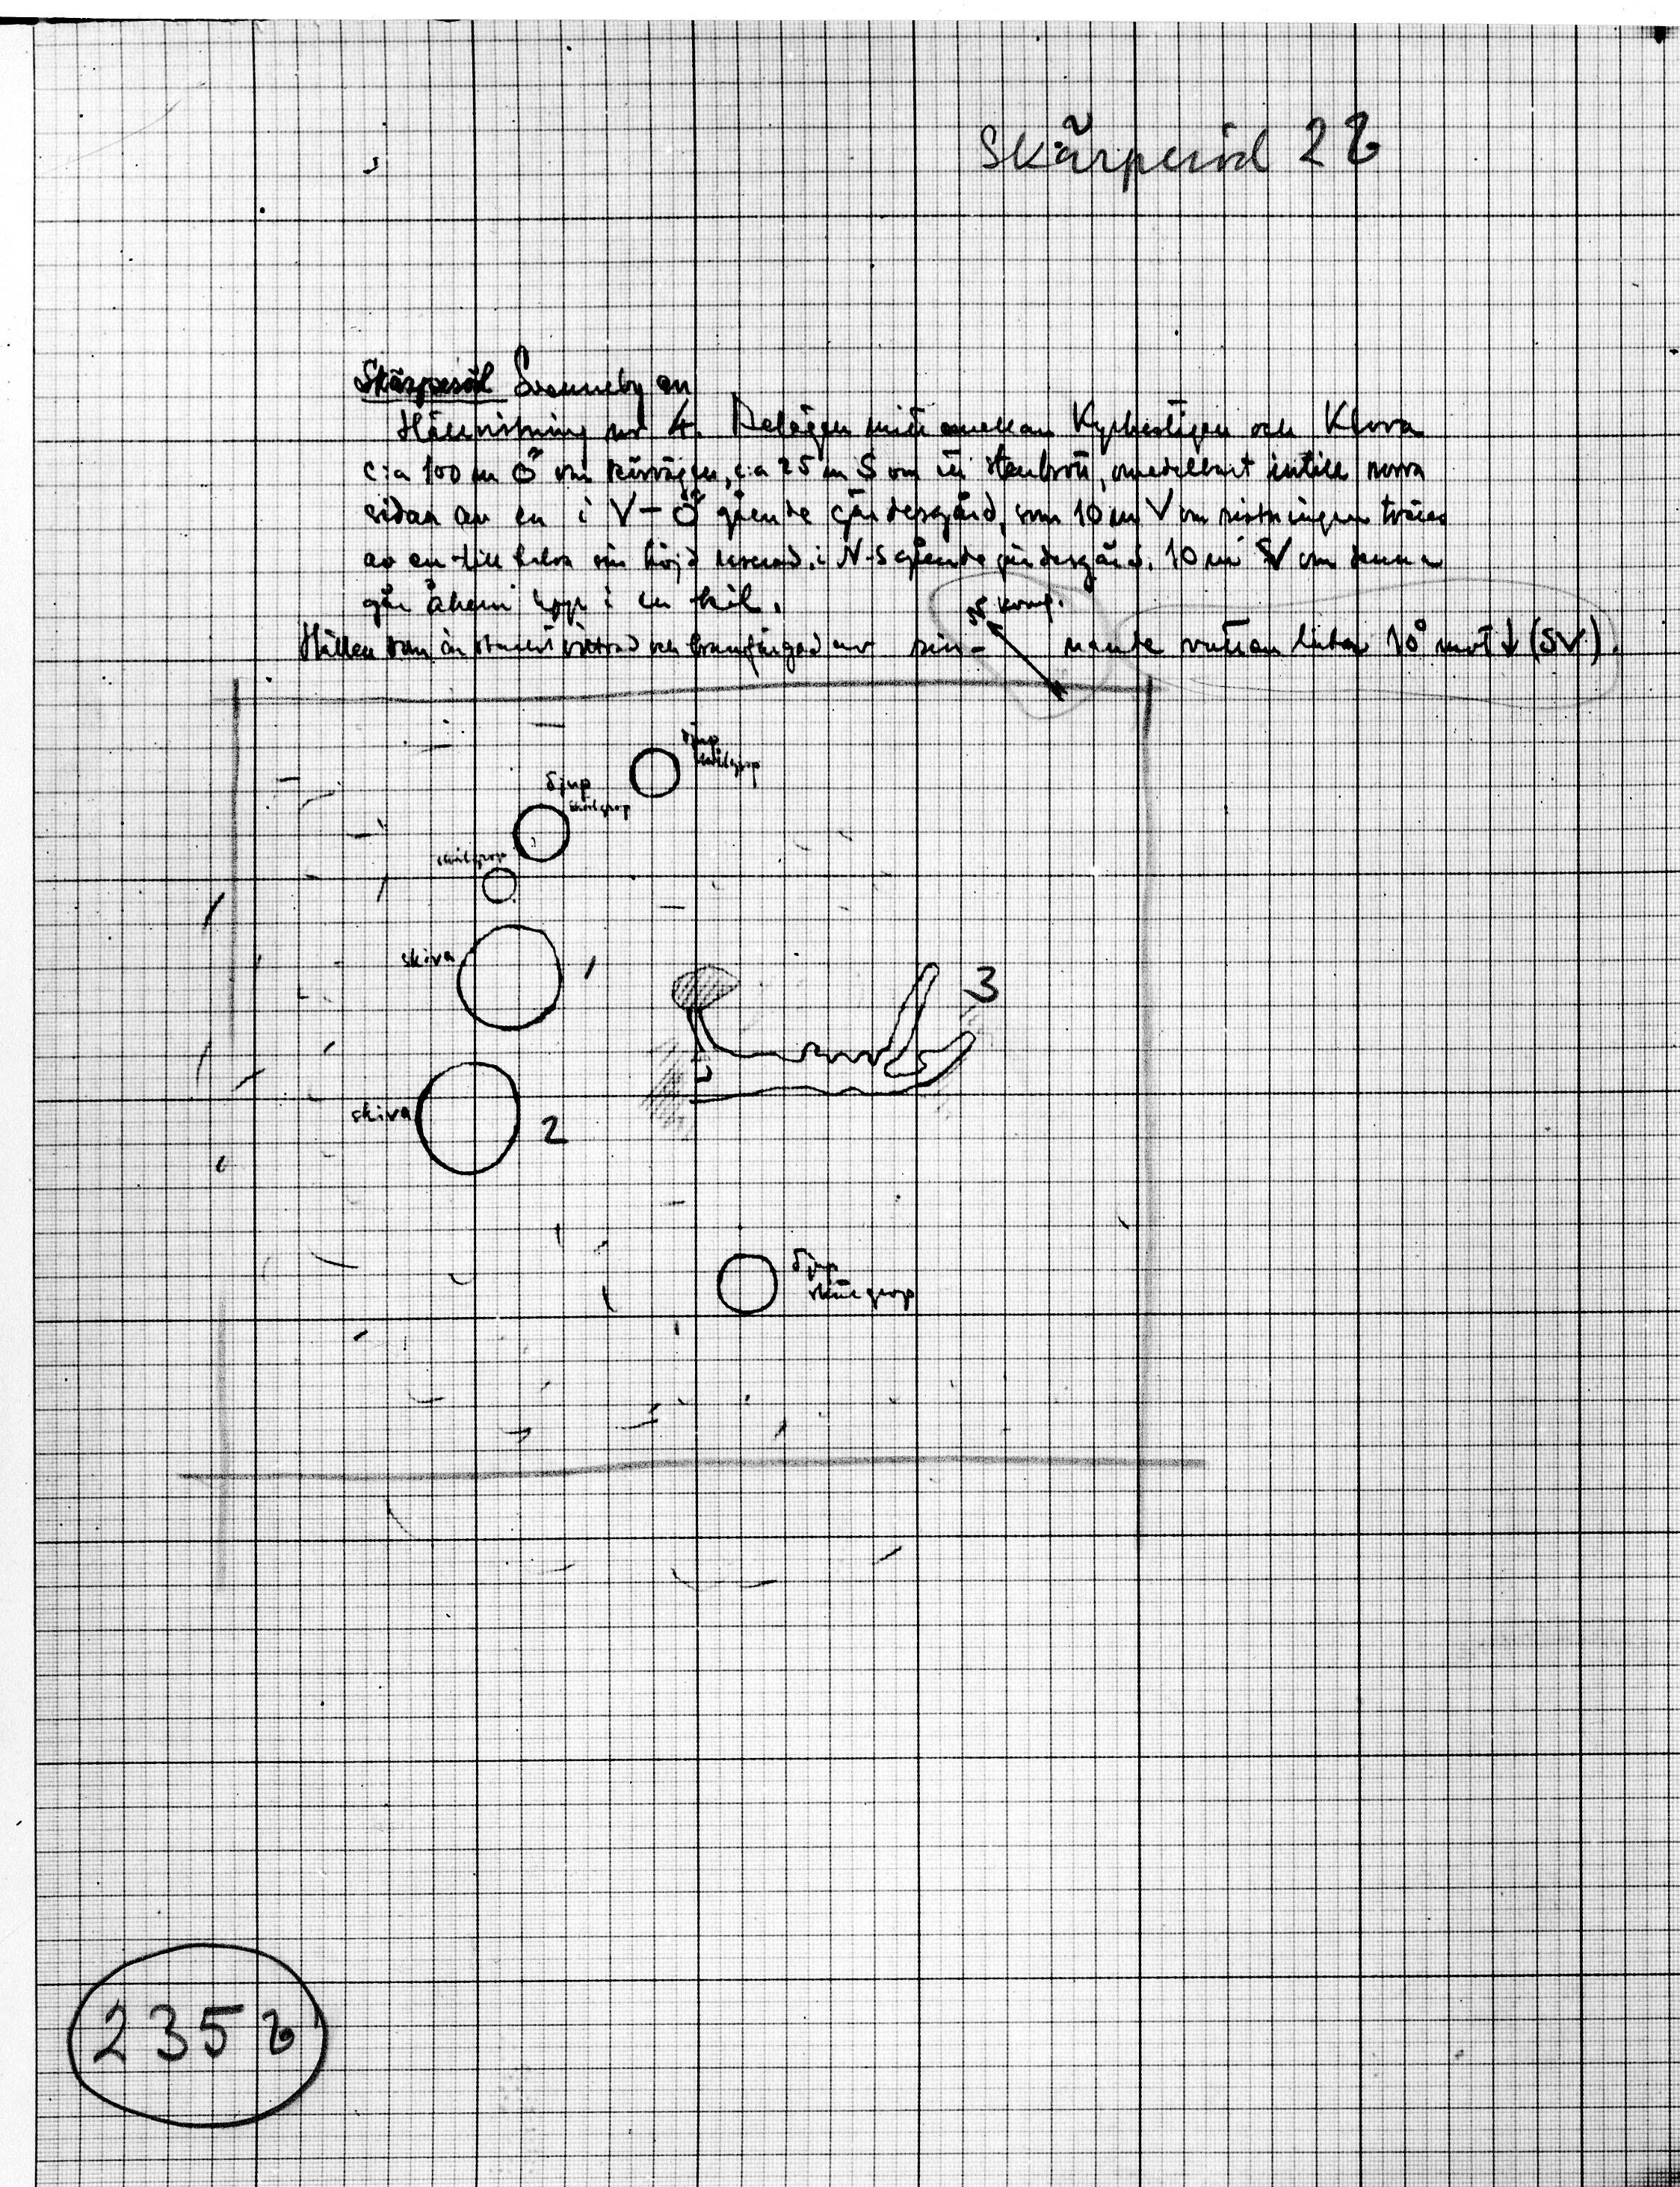 Skärperöd 2b
Skärperöd Svenneby sn
Hällristning nr 4. Belägen mitt emellan Kyrkestigen och Klova
c:a 100 m Ö om körvägen, c:a 25 m S om ett stenbrott, omedelbart intill norra
sidan av en i V-Ö gående gärdesgård, som 10 m V om ristningen
av en till halva sin höjd i N-S gående gärdesgård. 10 m V om denna
går åkern upp i en kil.
N komp.
Hällen som är starkt vittrad och av rin-
nande vatten lutar 10° mot ↓ (SV).
djup
skålgrop
djup
skålgrop
skålgrop
skiva
1
3
skiva
2
djup
skålgrop
235b